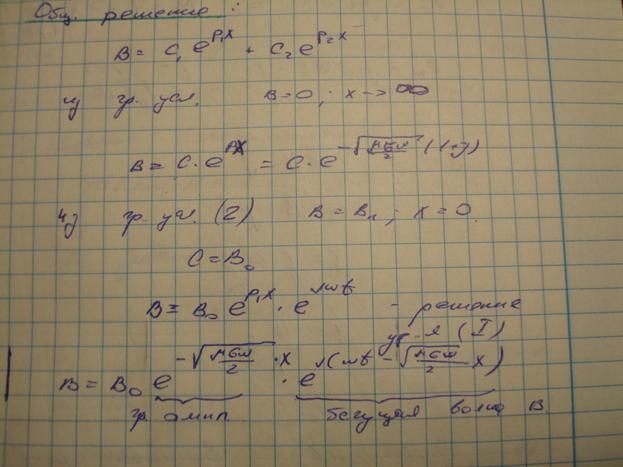 Общ. решение:
B = C₁ e^{p₁x} + C₂ e^{p₂x}
из гр. усл. B=0; x → ∞
B = C·e^{px} = C·e^{-√(μσω/2) (1+j)}
из гр. усл. (2) B = B₀; x = 0.
C = B₀
B = B₀ e^{p₁x} · e^{jωt} - решение
ур-я (I)
B = B₀ e^{-√(μσω/2)·x} · e^{j(ωt - √(μσω/2) x)}
гр. ампл. бегущая волна B